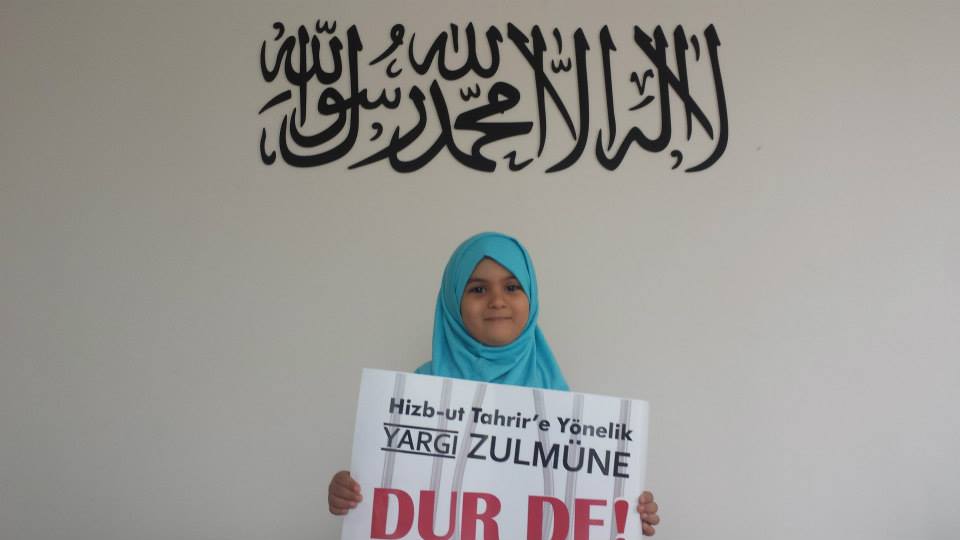 لا إله إلا الله محمد رسول الله
Hizb-ut Tahrir'e Yönelik
YARGI ZULMÜNE
DUR DE!